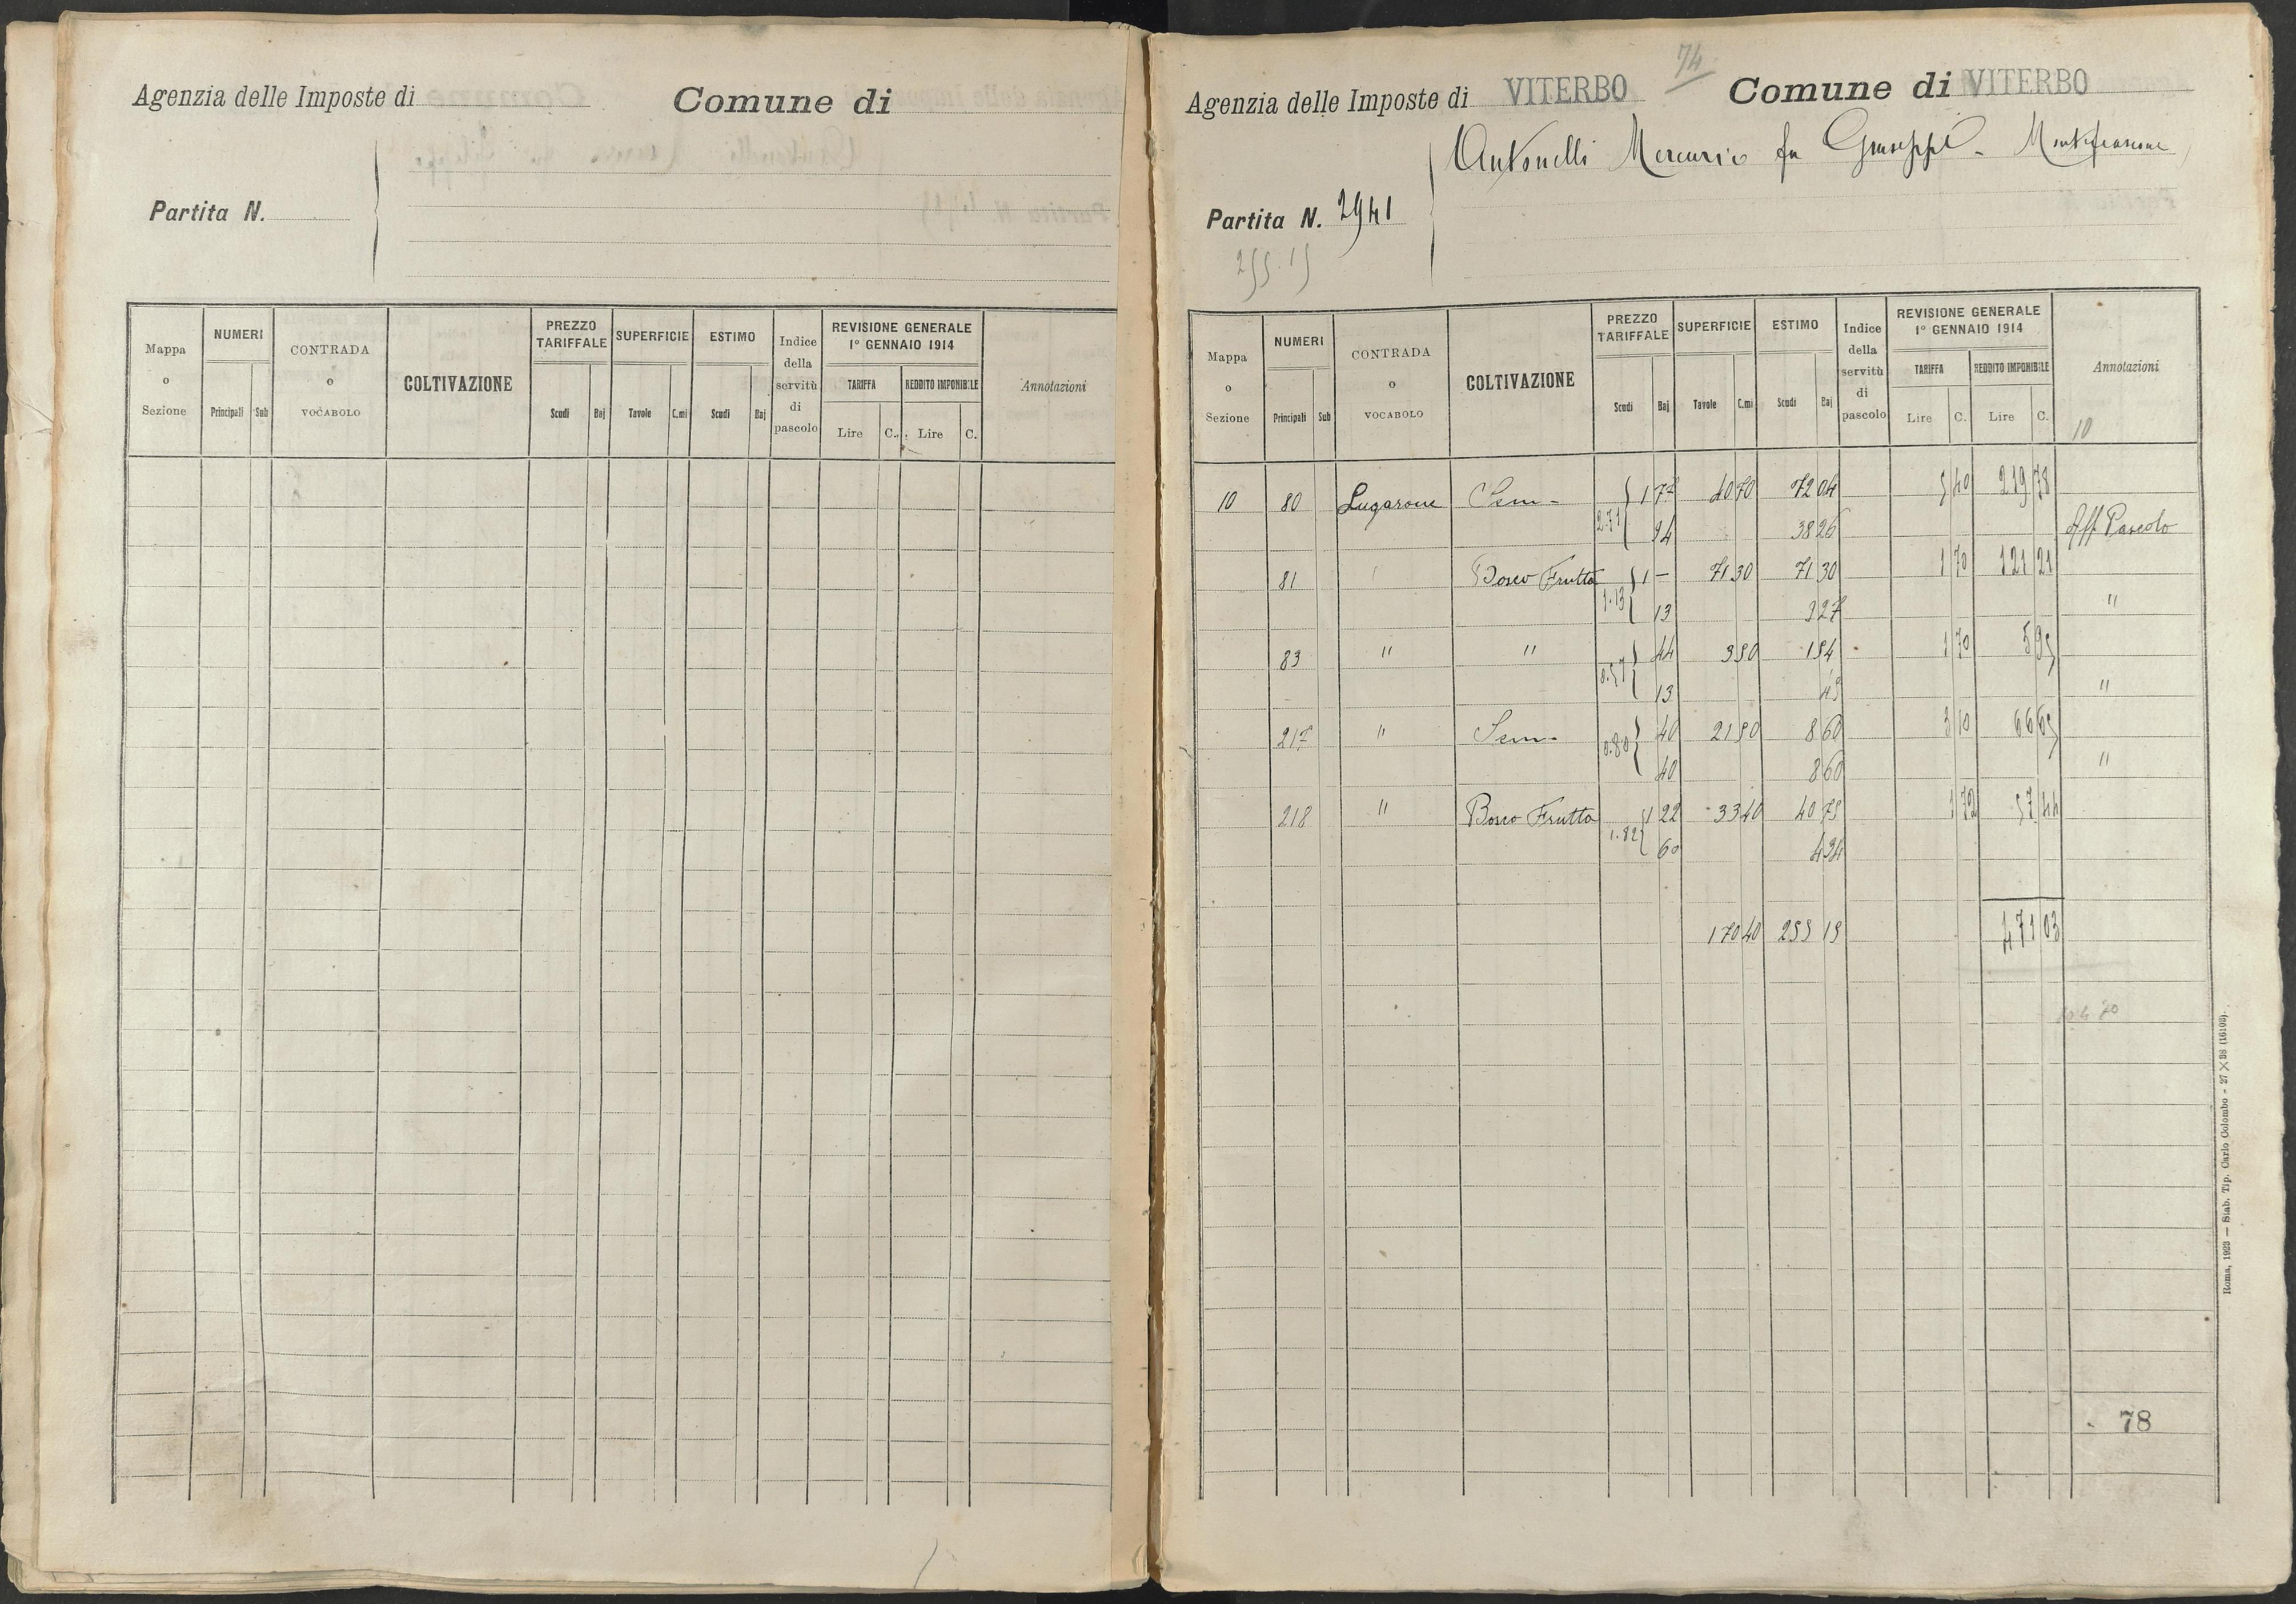 Agenzia delle Imposte di
Comune di
Partita N.
Mappa o Sezione
NUMERI
Principali Sub
CONTRADA o VOCABOLO
COLTIVAZIONE
PREZZO TARIFFALE
Scudi Baj
SUPERFICIE
Tavole C.mi
ESTIMO
Scudi Baj
Indice della servitù di pascolo
REVISIONE GENERALE
1° GENNAIO 1914
TARIFFA REDDITO IMPONIBILE
Lire C. Lire C.
Annotazioni
74
Agenzia delle Imposte di VITERBO Comune di VITERBO
Antonelli Mercurio fu Giuseppe - Montefiascone
Partita N. 2941
255.15
Mappa o Sezione
NUMERI
Principali Sub
CONTRADA o VOCABOLO
COLTIVAZIONE
PREZZO TARIFFALE
Scudi Baj
SUPERFICIE
Tavole C.mi
ESTIMO
Scudi Baj
Indice della servitù di pascolo
REVISIONE GENERALE
1° GENNAIO 1914
TARIFFA REDDITO IMPONIBILE
Lire C. Lire C.
Annotazioni
10
10 80 Lugarone Sem- 1 77 40 70 72 04 5 40 219 78
2.71 94 38 26 Aff Pascolo
81 Bosco Frutto 1 - 71 30 71 30 1 70 121 21
1.13 13 9 27 "
83 " " 44 3 50 1 54 1 70 5 95
0.57 13 45 "
217 " Sem- 40 21 50 8 60 3 10 66 65
0.80 40 8 60 "
218 " Bosco Frutto 1 22 33 40 40 75 1 72 57 44
1.82 60
170 40 255 15 471 03
78
Roma, 1923 — Stab. Tip. Carlo Colombo - 27 × 38 (16103).